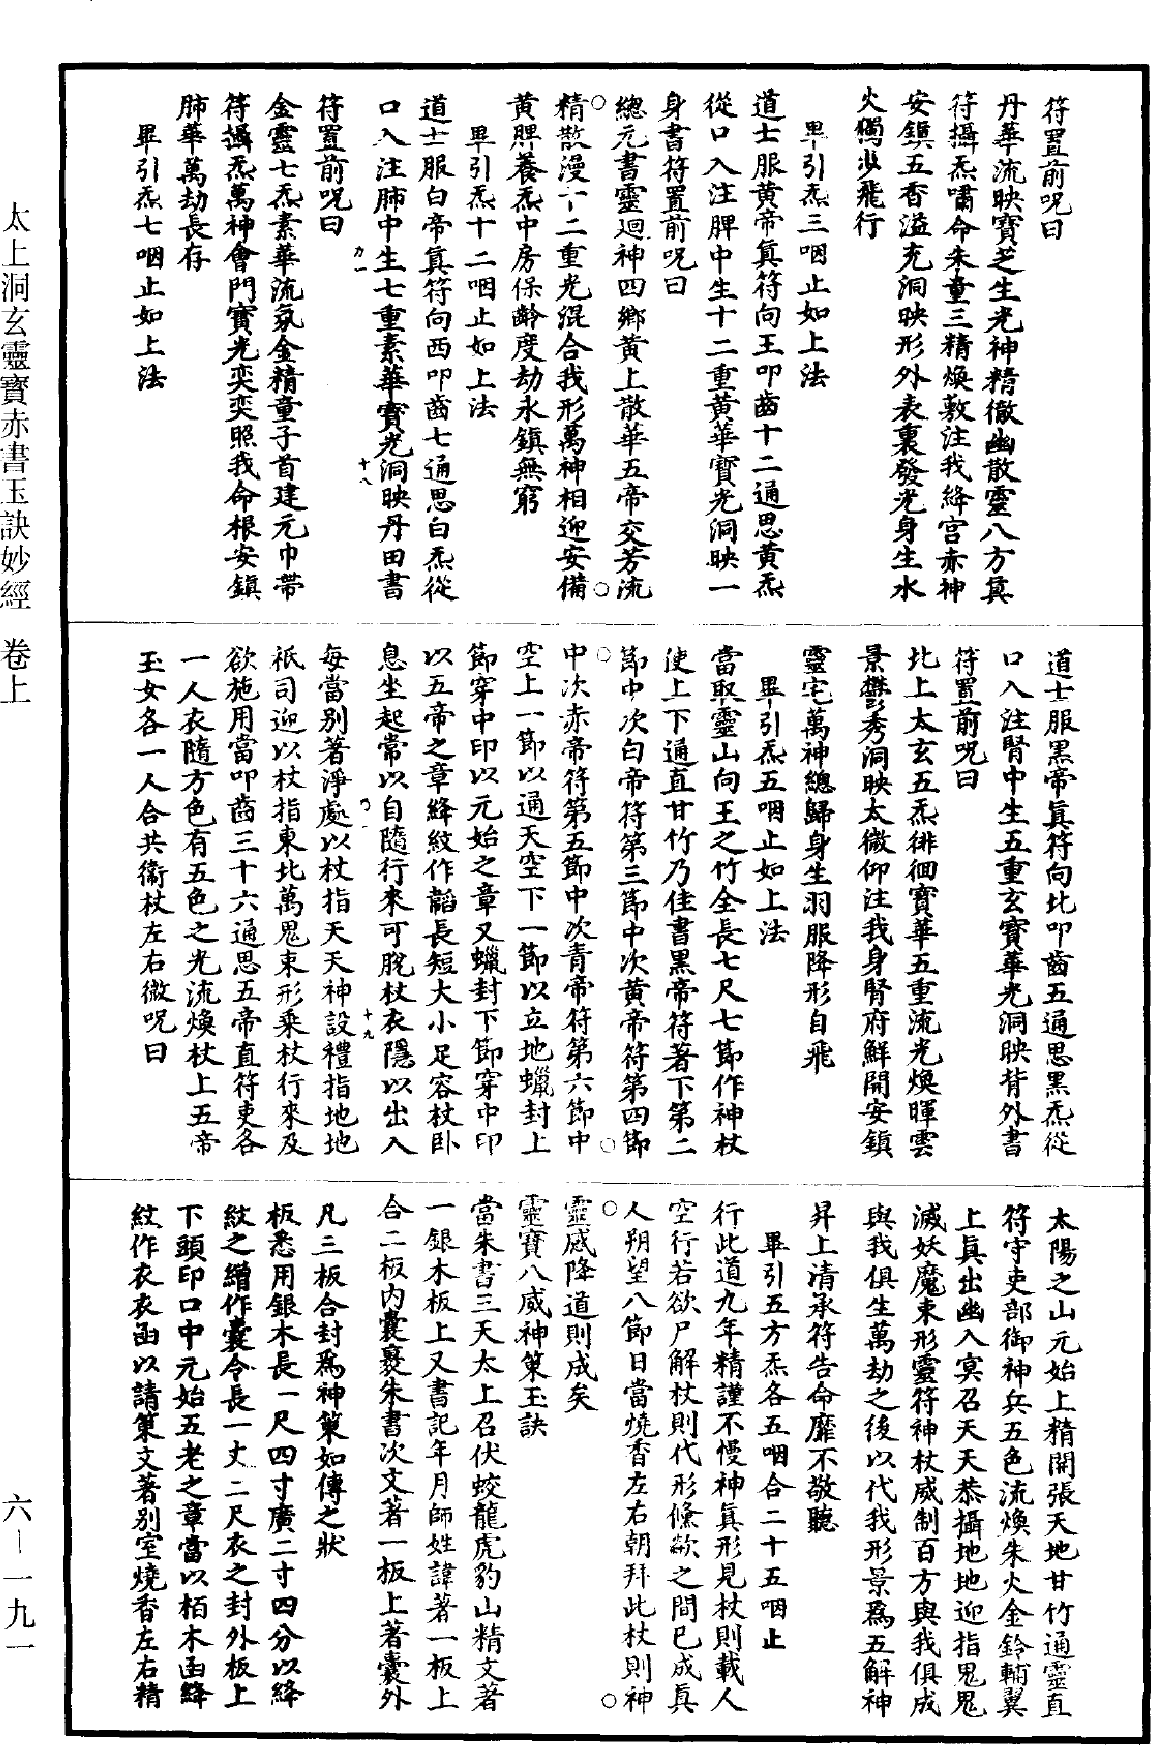 符置前呪曰
丹華流映寶芝生光神精徹幽散靈八方真
符攝炁嘯命朱童三精煥敷注我絳宮赤神
安鎮五香溢充洞映形外表裏發光身生水
火獨步飛行
畢引炁三咽止如上法
道士服黃帝真符向王叩齒十二通思黃炁
從口入注脾中生十二重黃華寶光洞映一
身書符置前呪曰
總元書靈迴神四鄉黃上散華五帝交芳流
精散漫十二重光混合我形萬神相迎安備
黃脾養炁中房保齡度劫永鎮無窮
畢引炁十二咽止如上法
道士服白帝真符向西叩齒七通思白炁從
口入注肺中生七重素華寶光洞映丹田書
符置前呪曰
金靈七炁素華流氛金精童子首建元巾帶
符攝炁萬神會門寶光奕奕照我命根安鎮
肺華萬劫長存
畢引炁七咽止如上法
十八
道士服黑帝真符向北叩齒五通思黑炁從
口入注腎中生五重玄寶華光洞映背外書
符置前呪曰
北上太玄五炁徘徊寶華五重流光煥暉雲
景鬱秀洞映太微仰注我身腎府鮮開安鎮
靈宅萬神總歸身生羽服降形自飛
畢引炁五咽止如上法
當取靈山向王之竹全長七尺七節作神杖
使上下通直甘竹乃佳書黑帝符著下第二
節中次白帝符第三節中次黃帝符第四節
中次赤帝符第五節中次青帝符第六節中
空上一節以通天空下一節以立地蠟封上
節穿中印以元始之章又蠟封下節穿中印
以五帝之章絳紋作韜長短大小足容杖卧
息坐起常以自隨行來可脫杖衣隱以出入
每當別著淨處以杖指天天神設禮指地地
祇司迎以杖指東北萬鬼束形乘杖行來及
欲施用當叩齒三十六通思五帝直符吏各
一人衣隨方色有五色之光流煥杖上五帝
玉女各一人合共衞杖左右微呪曰
十九
太陽之山元始上精開張天地甘竹通靈直
符守吏部御神兵五色流煥朱火金鈴輔翼
上真出幽入冥召天天恭攝地地迎指鬼鬼
滅妖魔束形靈符神杖威制百方與我俱成
與我俱生萬劫之後以代我形景為五解神
昇上清承符告命靡不敬聽
畢引五方炁各五咽合二十五咽止
行此道九年精謹不慢神真形見杖則載人
空行若欲尸解杖則代形倏歘之間已成真
人朔望八節日當燒香左右朝拜此杖則神
靈感降道則成矣
靈寶八威神策玉訣
當朱書三天太上召伏蛟龍虎豹山精文著
一銀木板上又書記年月師姓諱著一板上
合二板內囊裹朱書次文著一板上著囊外
凡三板合封為神策如傳之狀
板悉用銀木長一尺四寸廣二寸四分以絳
紋之繒作囊令長一丈二尺衣之封外板上
下頭印口中元始五老之章當以栢木函絳
紋作衣衣函以請策文著別室燒香左右精
太上洞玄靈寶赤書玉訣妙經 卷上
六—一九一